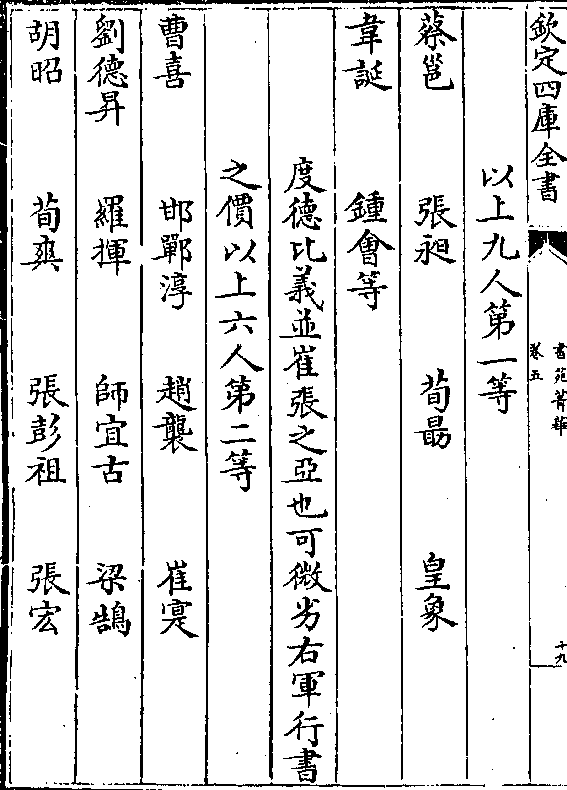 欽定四庫全書
書苑菁華
卷五
十九
以上九人第一等
蔡邕 張昶 荀勗 皇象
韋誕 鍾會等
度德比義並崔張之亞也可微劣右軍行書
之價以上六人第二等
曹喜 邯鄲淳 趙襲 崔寔
劉德昇 羅揮 師宜古 梁鵠
胡昭 荀爽 張彭祖 張宏